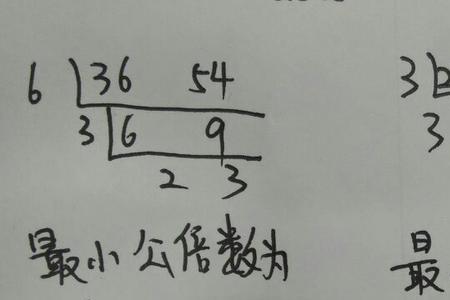 6 36 54
3 6 9
2 3
最小公倍数为
3
3
最